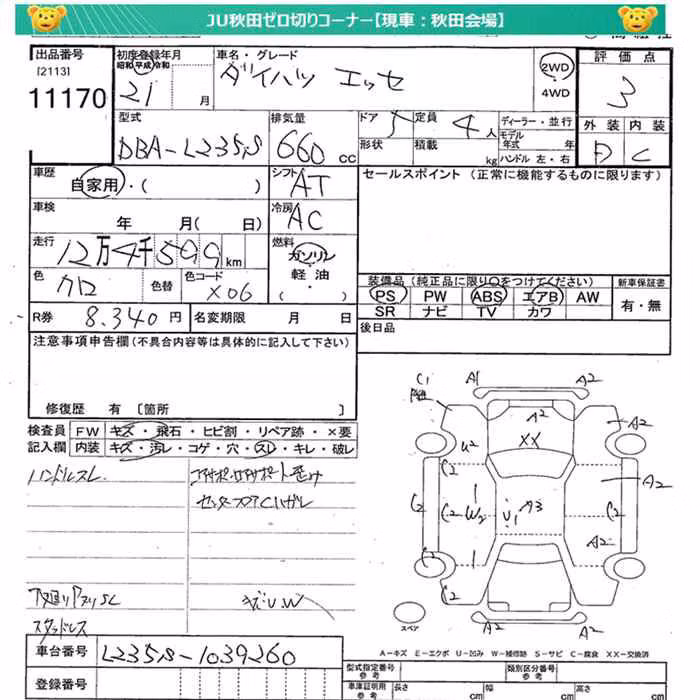 JU秋田ゼロ切りコーナー【現車：秋田会場】
出品番号
[2113]
11170
初度登録年月
昭和 平成 令和
21 月
車名・グレード
ダイハツ エッセ
2WD
4WD
評価点
3
外装 内装
D C
型式
DBA-L235S
排気量
660 cc
ドア 5
定員 4人
形状
積載 kg
ディーラー・並行
モデル年式 年
ハンドル 左・右
車歴
自家用・( )
シフト AT
セールスポイント（正常に機能するものに限ります）
車検
年 月( 日)
冷房 AC
走行
12万4千599 km
燃料
ガソリン
軽油
・( )
色
クロ
色替
色コード
X06
装備品（純正品に限り○をつけてください）
PS PW ABS エアB AW
SR ナビ TV カワ
新車保証書
有・無
R券 8.340 円
名変期限 月 日
後日品
注意事項申告欄（不具合内容等は具体的に記入して下さい）
修復歴 有 [箇所 ]
検査員 FW キズ・飛石・ヒビ割・リペア跡・×要
記入欄 内装 キズ・汚レ・コゲ・穴・スレ・キレ・破レ
ハンドルスレ
下廻りサビSC
キズU.W
スタッドレス
C1
A1
A2
A2
A2
XX
U2
C2
A2
C2
C2
W2
U1
A3
C2
A2
C2
C2
A2
A2
スペア
A-キズ E-エクボ U-凹み W-補修跡 S-サビ C-腐食 XX-交換済
車台番号
L235S-1039260
登録番号
型式指定番号
参考
類別区分番号
参考
車庫証明用
参考
長さ cm
幅 cm
高さ cm